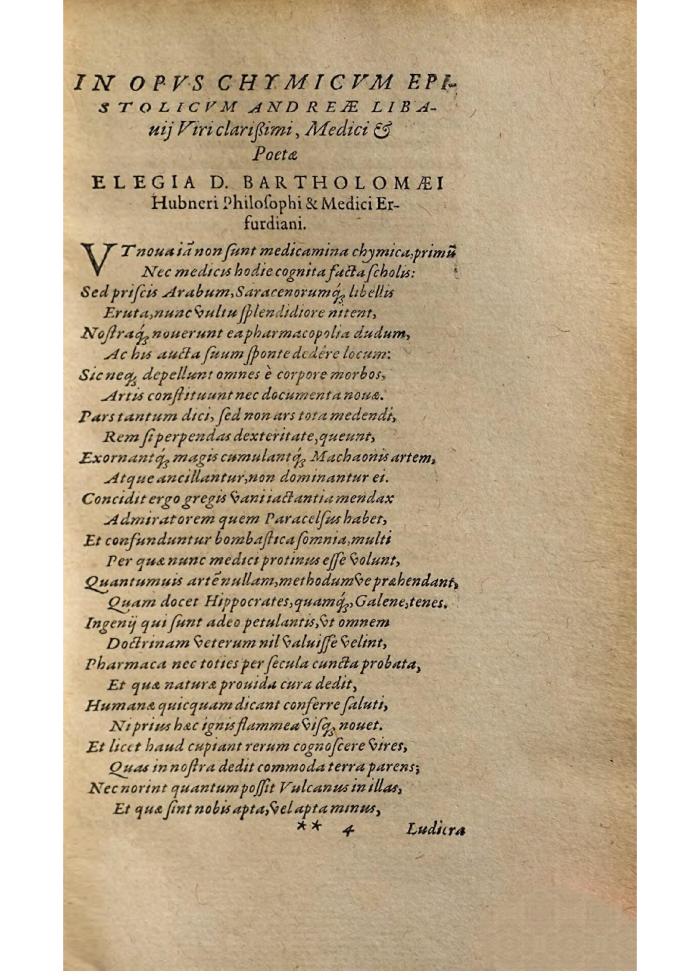 IN OPVS CHYMICVM EPI-
STOLICVM ANDREÆ LIBA-
uij Viri clarißimi, Medici &
Poetæ
ELEGIA D. BARTHOLOMÆI
Hubneri Philoſophi & Medici Er-
furdiani.
VT noua iā non ſunt medicamina chymica, primū
Nec medicis hodie cognita facta ſcholis:
Sed priſcis Arabum, Saracenorumq́ꝫ libellis
Eruta, nunc vultu ſplendidiore nitent,
Noſtraq́ꝫ nouerunt ea pharmacopolia dudum,
Ac his aucta ſuum ſponte dedére locum:
Sic neqꝫ depellunt omnes è corpore morbos,
Artis conſtituunt nec documenta nouæ.
Pars tantum dici, ſed non ars tota medendi,
Rem ſi perpendas dexteritate, queunt,
Exornantq́ꝫ magis cumulantq́ꝫ Machaonis artem,
Atque ancillantur, non dominantur ei.
Concidit ergo gregis vani iactantia mendax
Admiratorem quem Paracelſus habet,
Et confunduntur bombaſtica ſomnia, multi
Per quæ nunc medici protinus eſſe volunt,
Quantumuis artē nullam, methodumve præhendant,
Quam docet Hippocrates, quamq́ꝫ, Galene, tenes.
Ingenij qui ſunt adeo petulantis, vt omnem
Doctrinam veterum nil valuiſſe velint,
Pharmaca nec toties per ſecula cuncta probata,
Et quæ naturæ prouida cura dedit,
Humanæ quicquam dicant conferre ſaluti,
Ni prius hæc ignis flammea viſqꝫ nouet.
Et licet haud cupiant rerum cognoſcere vires,
Quas in noſtra dedit commoda terra parens;
Nec norint quantum poſſit Vulcanus in illas,
Et quæ ſint nobis apta, vel apta minus,
** 4 Ludicra